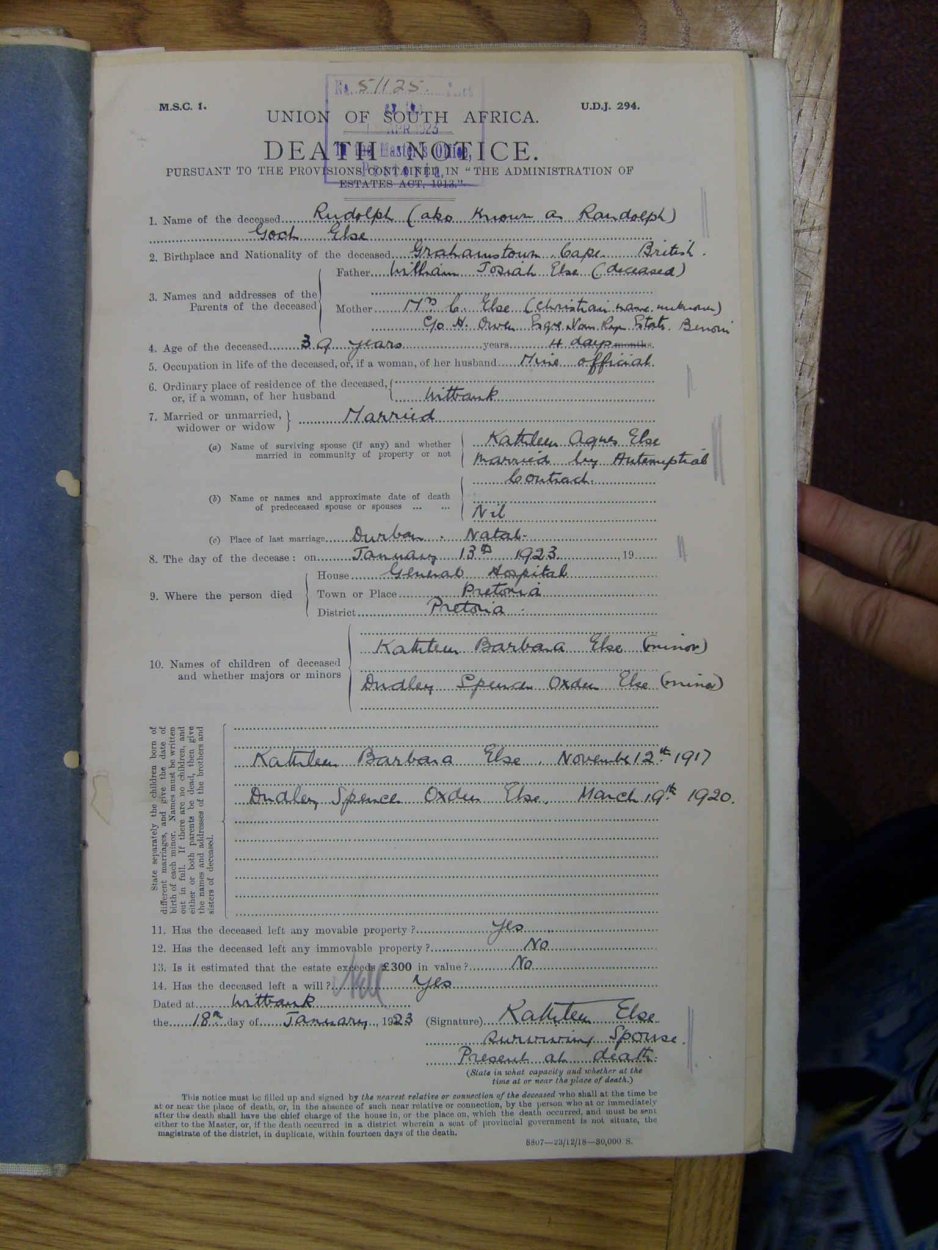 No. 51125.
APR 1923
the Master's Office,
Pretoria.
M.S.C. 1.
U.D.J. 294.
UNION OF SOUTH AFRICA.
DEATH NOTICE.
PURSUANT TO THE PROVISIONS CONTAINED IN "THE ADMINISTRATION OF
ESTATES ACT, 1913."
1. Name of the deceased Rudolph (also Known as Randolph)
Goch Else
2. Birthplace and Nationality of the deceased Grahamstown Cape British.
3. Names and addresses of the Parents of the deceased
Father William Josiah Else (deceased)
Mother Mrs C. Else (Christian name unknown)
C/o H. Owen Esqre Estate Benoni
4. Age of the deceased 39 years years 4 days months.
5. Occupation in life of the deceased, or, if a woman, of her husband Mine official
6. Ordinary place of residence of the deceased,
or, if a woman, of her husband Witbank
7. Married or unmarried,
widower or widow Married
(a) Name of surviving spouse (if any) and whether
married in community of property or not
Kathleen Agnes Else
Married by Antenuptial
Contract.
(b) Name or names and approximate date of death
of predeceased spouse or spouses ... ...
Nil
(c) Place of last marriage Durban. Natal.
8. The day of the decease: on January 13th 1923 , 19
9. Where the person died
House General Hospital
Town or Place Pretoria
District Pretoria.
10. Names of children of deceased
and whether majors or minors
Kathleen Barbara Else (minor)
Dudley Spence Oxden Else (minor)
State separately the children born of
different marriages, and give the date of
birth of each minor. Names must be written
out in full. If there are no children, and
either or both parents be dead, then give
the names and addresses of the brothers and
sisters of deceased.
Kathleen Barbara Else. November 12th 1917
Dudley Spence Oxden Else. March 19th 1920.
11. Has the deceased left any movable property? Yes
12. Has the deceased left any immovable property? No
13. Is it estimated that the estate exceeds £300 in value? No
14. Has the deceased left a will? Yes
Dated at Witbank
the 18th day of January, 1923
(Signature) Kathleen Else
Surviving Spouse.
Present at death.
(State in what capacity and whether at the
time at or near the place of death.)
This notice must be filled up and signed by the nearest relative or connection of the deceased who shall at the time be
at or near the place of death, or, in the absence of such near relative or connection, by the person who at or immediately
after the death shall have the chief charge of the house in, or the place on, which the death occurred, and must be sent
either to the Master, or, if the death occurred in a district wherein a seat of provincial government is not situate, the
magistrate of the district, in duplicate, within fourteen days of the death.
8807—23/12/18—30,000 S.